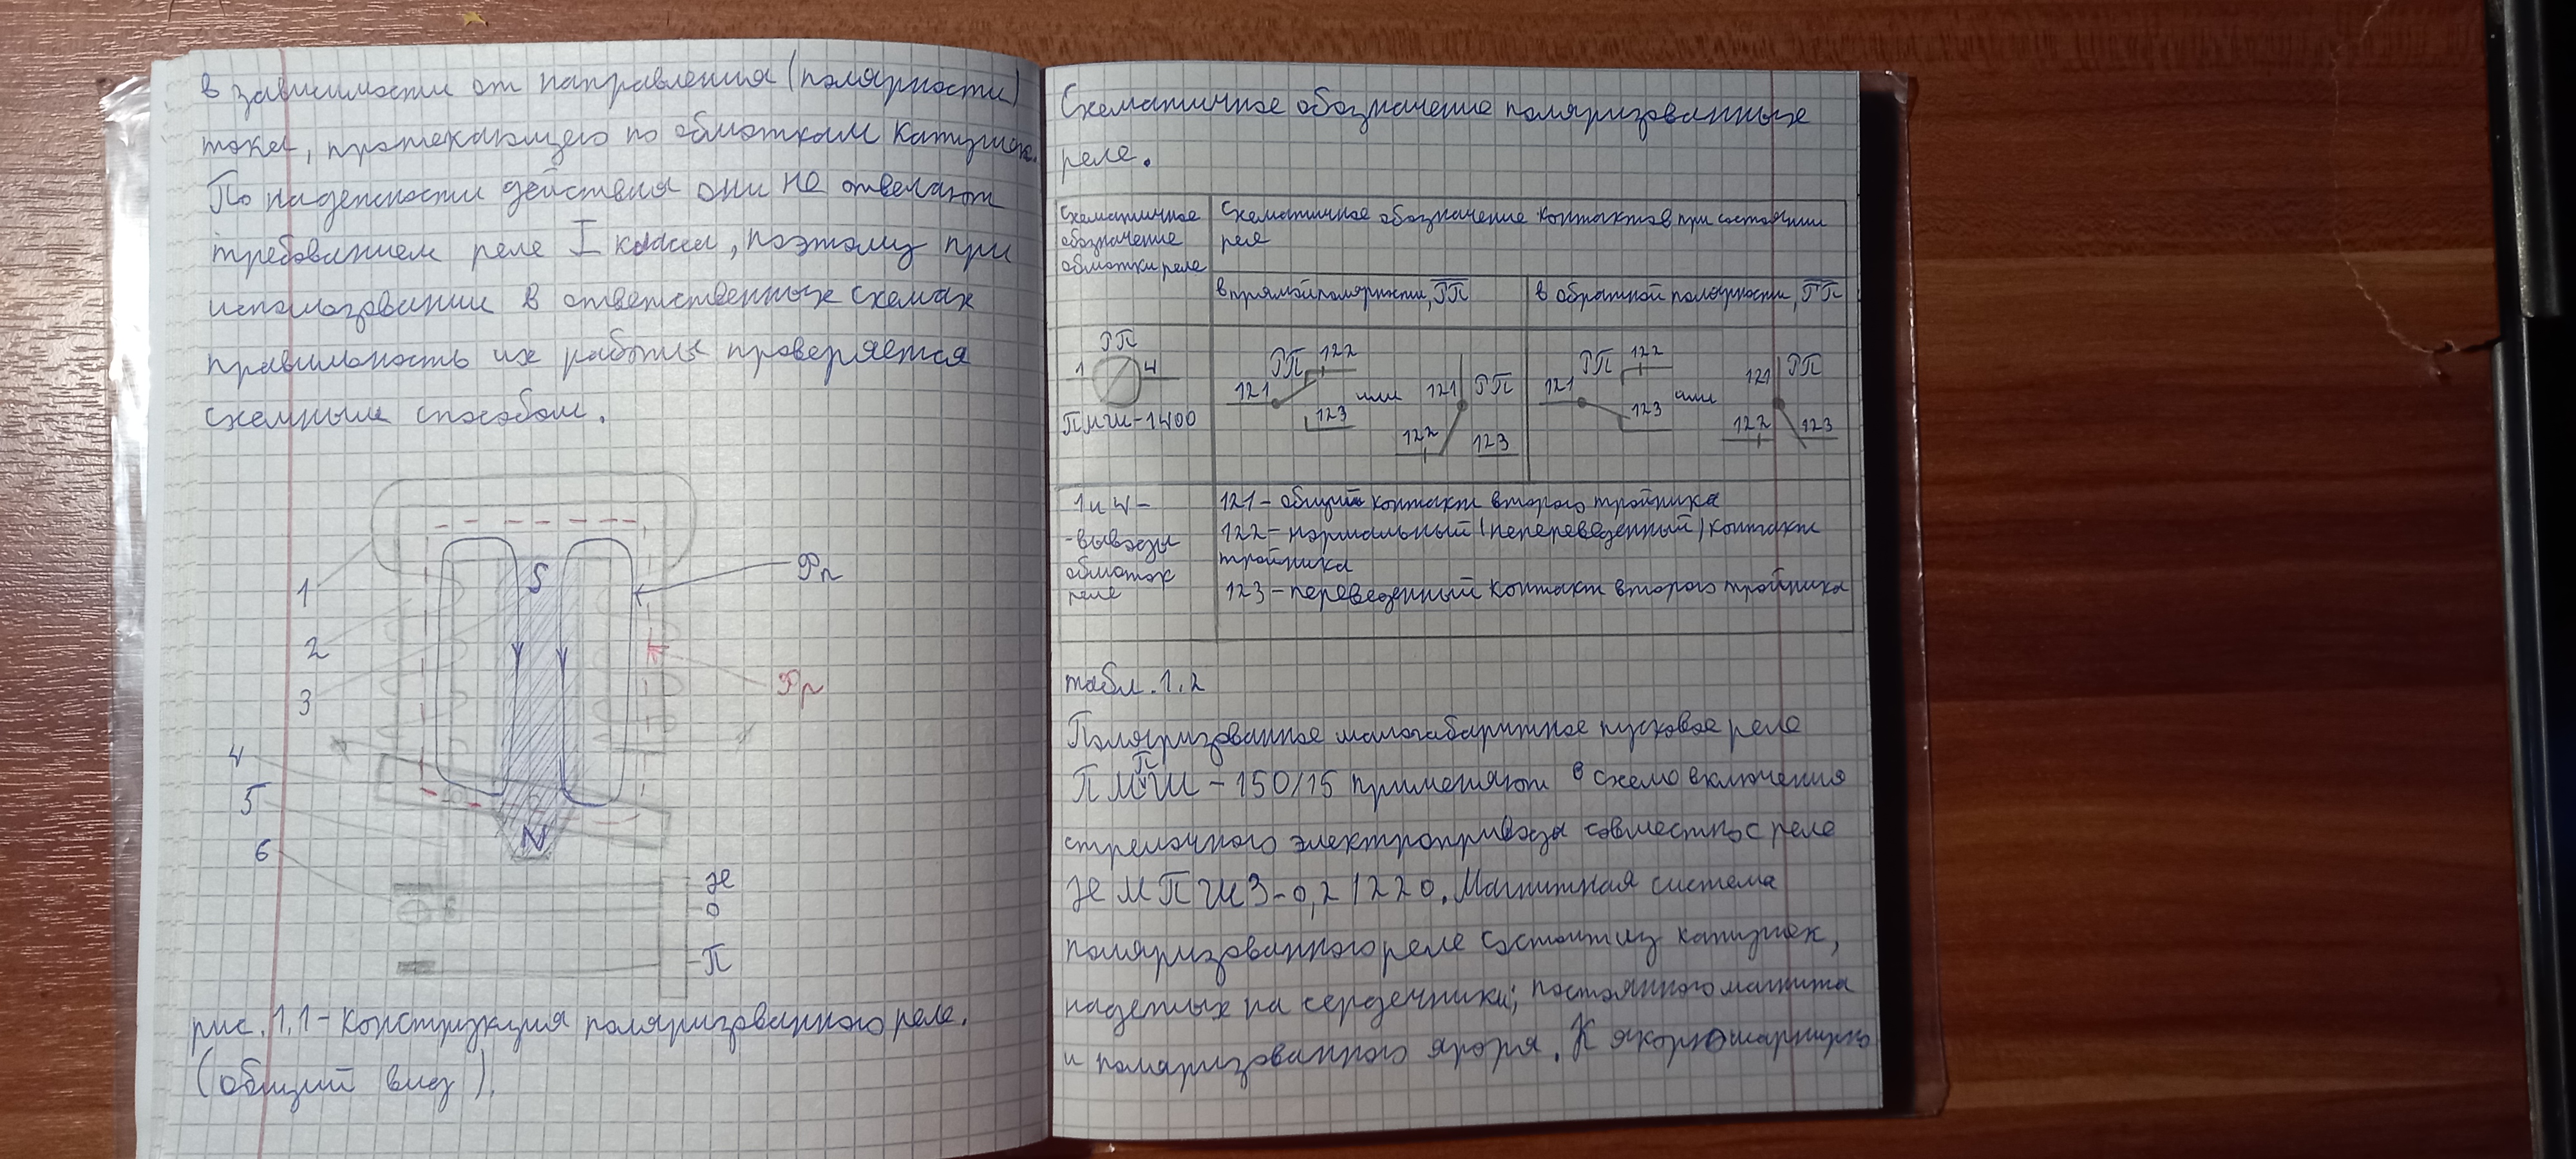 в зависимости от направления (полярности)
тока, протекающего по обмоткам катушек.
По надежности действия они не отвечают
требованием реле I класса, поэтому при
использовании в ответственных схемах
правильность их работы проверяется
схемным способом.
S
Фп
1
2
3
Фр
4
5
6
N
Н
О
П
рис. 1.1 - Конструкция поляризованного реле.
(общий вид).
Схематичное обозначение поляризованных
реле.
Схематичное
обозначение
обмотки реле
Схематичное обозначение контактов при состоянии
реле
в прямой полярности, РП
в обратной полярности, РП
РП
1 4
ПМШ-1400
РП 122
121 или
123
121 РП
122 123
РП 122
121 или
123
121 РП
122 123
1 и 4 -
-выводы
обмоток
реле
121 - общий контакт второго тройника
122 - нормальный (переведенный) контакт
тройника
123 - переведенный контакт второго тройника
табл. 1.2
Поляризованное малогабаритное пусковое реле
ПМПШ - 150/15 применяют в схеме включения
стрелочного электропривода совместно с реле
НМПШ3-0,2/220. Магнитная система
поляризованного реле состоит из катушек,
надетых на сердечники; постоянного магнита
и поляризованного якоря. К якорю шарнирно